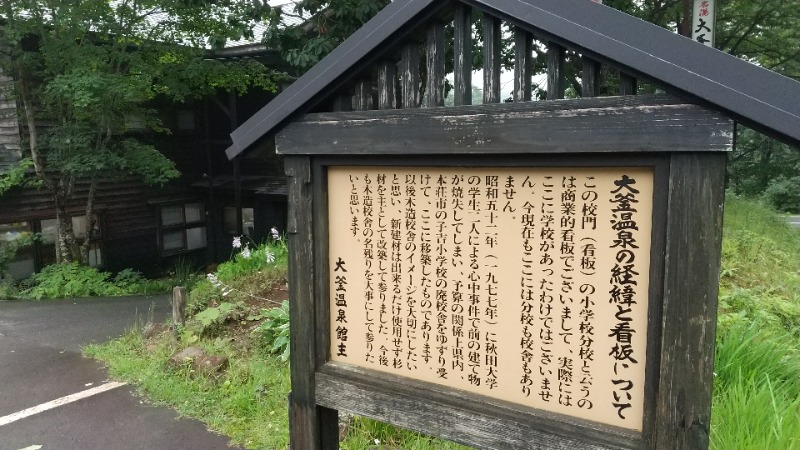 大釜温泉の経緯と看板について
この校門(看板)の小学校分校と云うの
は商業的看板でございまして、実際には
ここに学校があったわけではございませ
ん。今現在もここには分校も校舎もあり
ません。
昭和五十二年(一九七七年)に秋田大学
の学生二人による心中事件で前の建て物
が焼失してしまい、予算の関係上県内、
本荘市の子吉小学校の廃校舎をゆずり受
けて、ここに移築したものであります。
以後木造校舎のイメージを大切にしたい
と思い、新建材は出来るだけ使用せず杉
材を主として改築して参りました。今後
も木造校舎の名残りを大事にして参りた
いと思います。
大釜温泉 館主